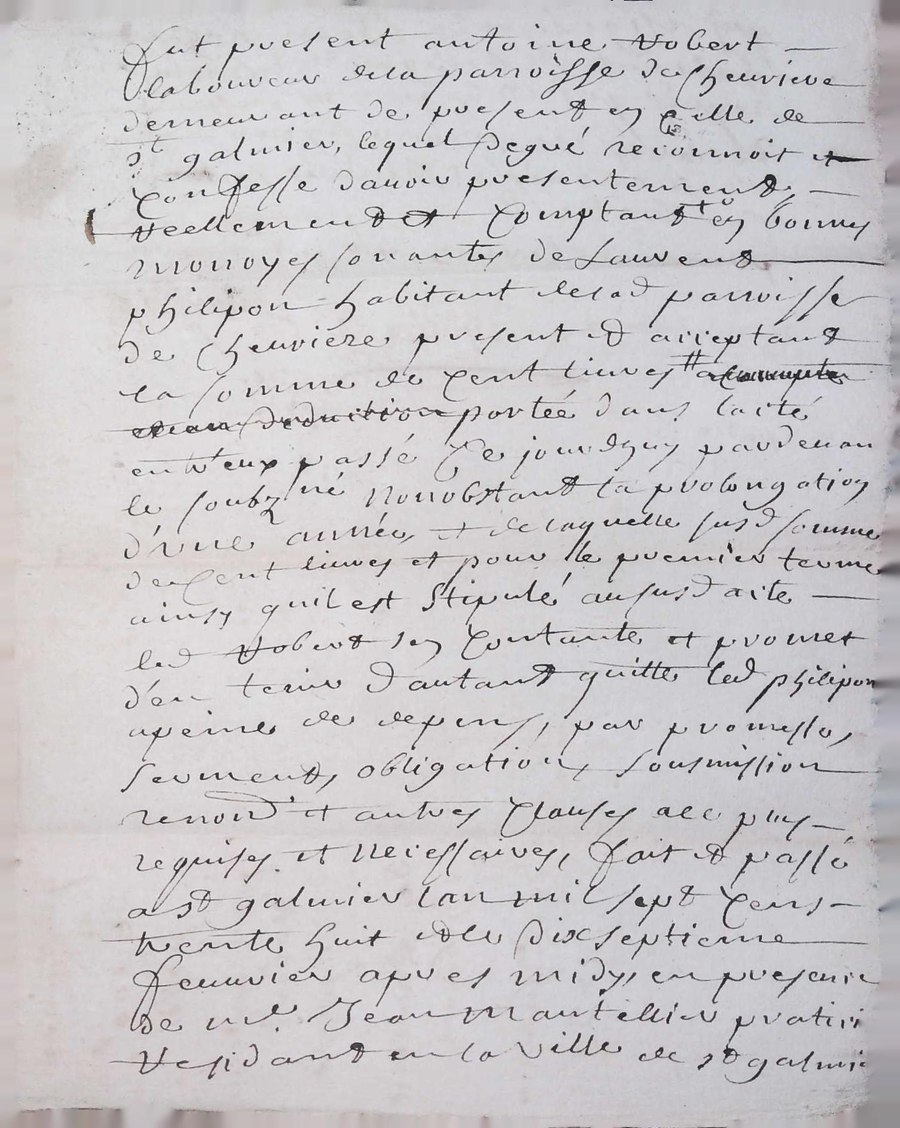 fut present antoine Robert
laboureur dela parroisse de Cheuriere
demeurant de present en ville de
st galmier, lequel de gré reconnoit et
confesse dauoir presentement,
reellement et comptant et en bonnes
monoyes sonantes de Laurent
philipon habitant de lad parroisse
de Cheuriere present et acceptant
la somme de cent liures ₶ acompte
et en deduction portée dans lacte
entr'eux passé ce jourdhuy pardeuan
le soubzné nonobstant la prolongation
d'vne année, et de laquelle susd somme
de cent liures et pour le premier terme
ainsy quil est stipulé au susd acte
led Robert sen contante et promet
d'en tenir dautant quitte led philipon
apeine de depens, par promesses,
serments, obligations, sousmission
renond et autres clauses aec
requises et necessaires, fait et passé
a st galmier lan mil sept cens
trente huit et le dix septieme
feuurier apres midy, en presence
de me Jean Mantellier pratici
residant en la ville de st galmie